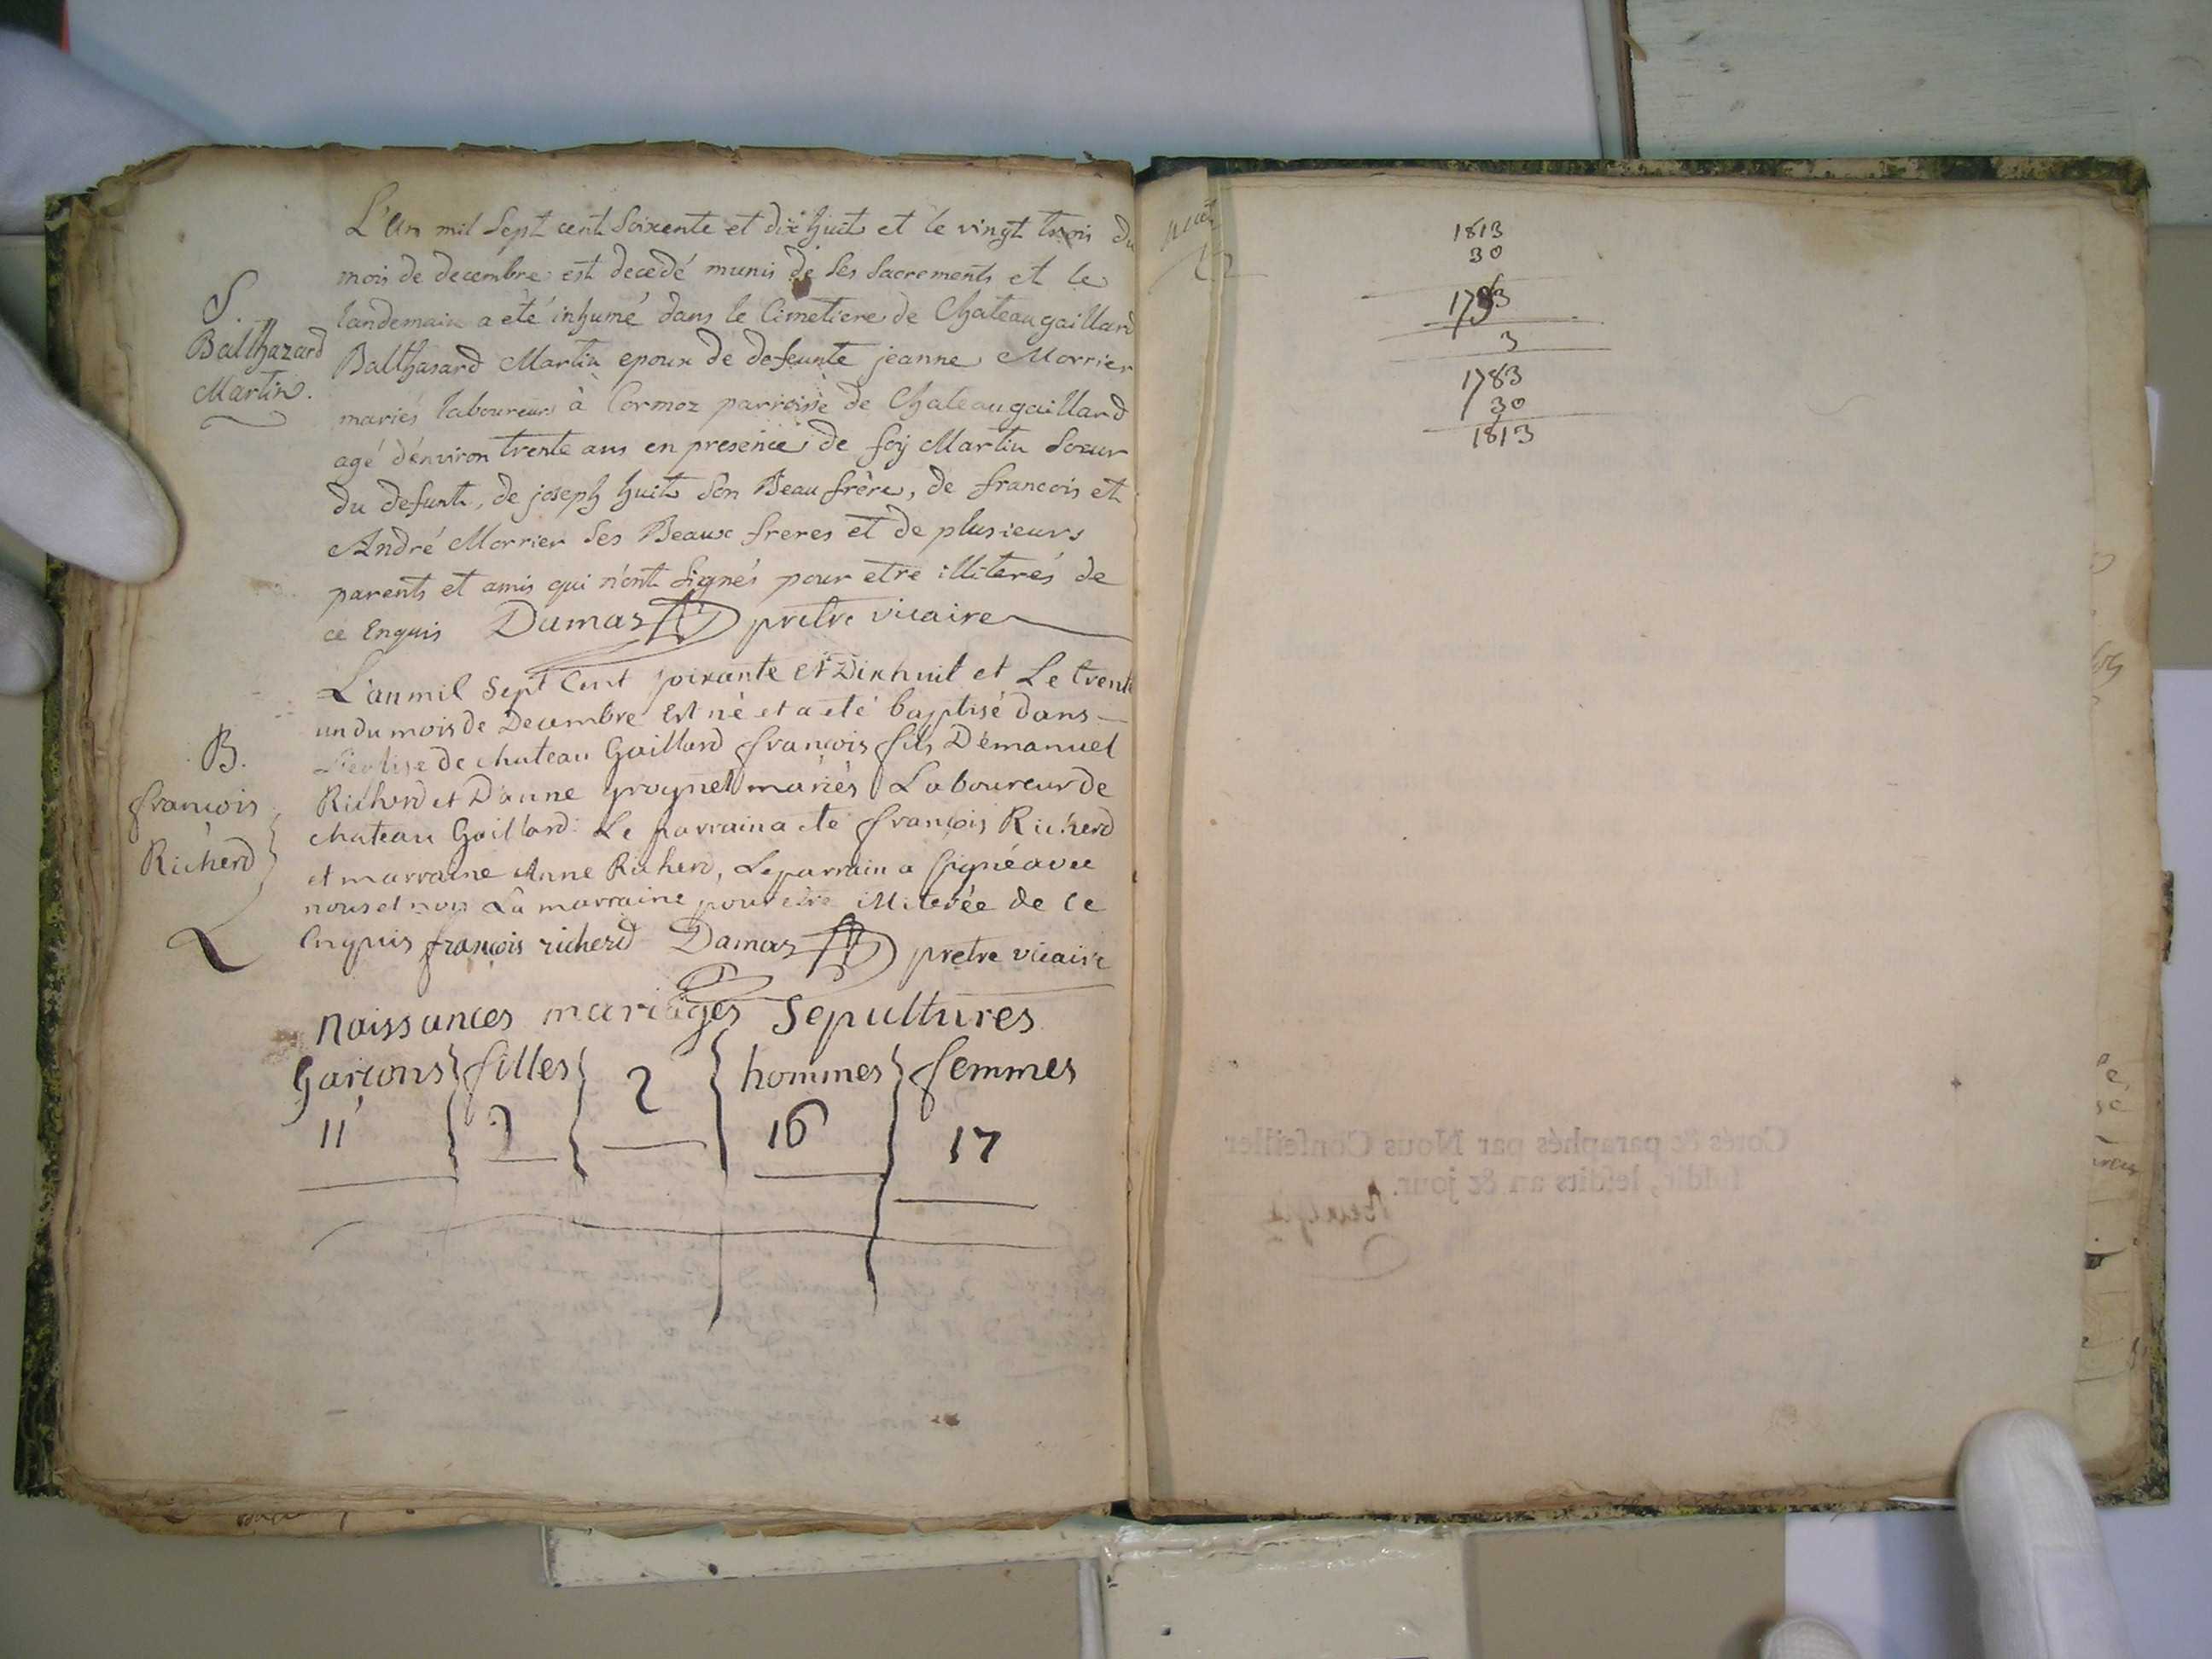 L'an mil Sept cent Soixente et dix huit et le vingt trois du
mois de decembre est decedé munis de Ses Sacrements et le
landemain a eté inhumé dans le Cimetiere de Chateaugaillard
Balthasard Martin epoux de defeunte jeanne Morrier
mariés laboureurs à Cormoz parroisse de Chateaugaillard
agé d'environ trente ans en presence de foÿ Martin Soeur
du defunt, de joseph huit Son Beaufrère, de francois et
André Morrier Ses Beaux freres et de plusieurs
parents et amis qui n'ont Signés pour etre illiterés de
ce Enquis Damaz pretre vicaire
S.
Balthazard
Martin.
L'an mil Sept Cent soixante et Dixhuit et Le trente
un du mois de Decembre Est né et a eté baptisé dans
L'eglise de chateau Gaillard françois fils D'emanuel
Richerd et D'anne mariés Laboureur de
chateau Gaillard. Le parrain a eté françois Richerd
et marraine Anne Richerd, Le parrain a Signé avec
nous et non La marraine pour etre illiterée de ce
Enquis françois richerd Damaz pretre vicaire
B.
françois
Richerd
naissances mariages Sepultures
Garçons filles 2 hommes femmes
11 16 17
1813
30
3
1783
30
1813
Cotés & paraphés par Nous Conseiller
susdit, lesdits an & jour.